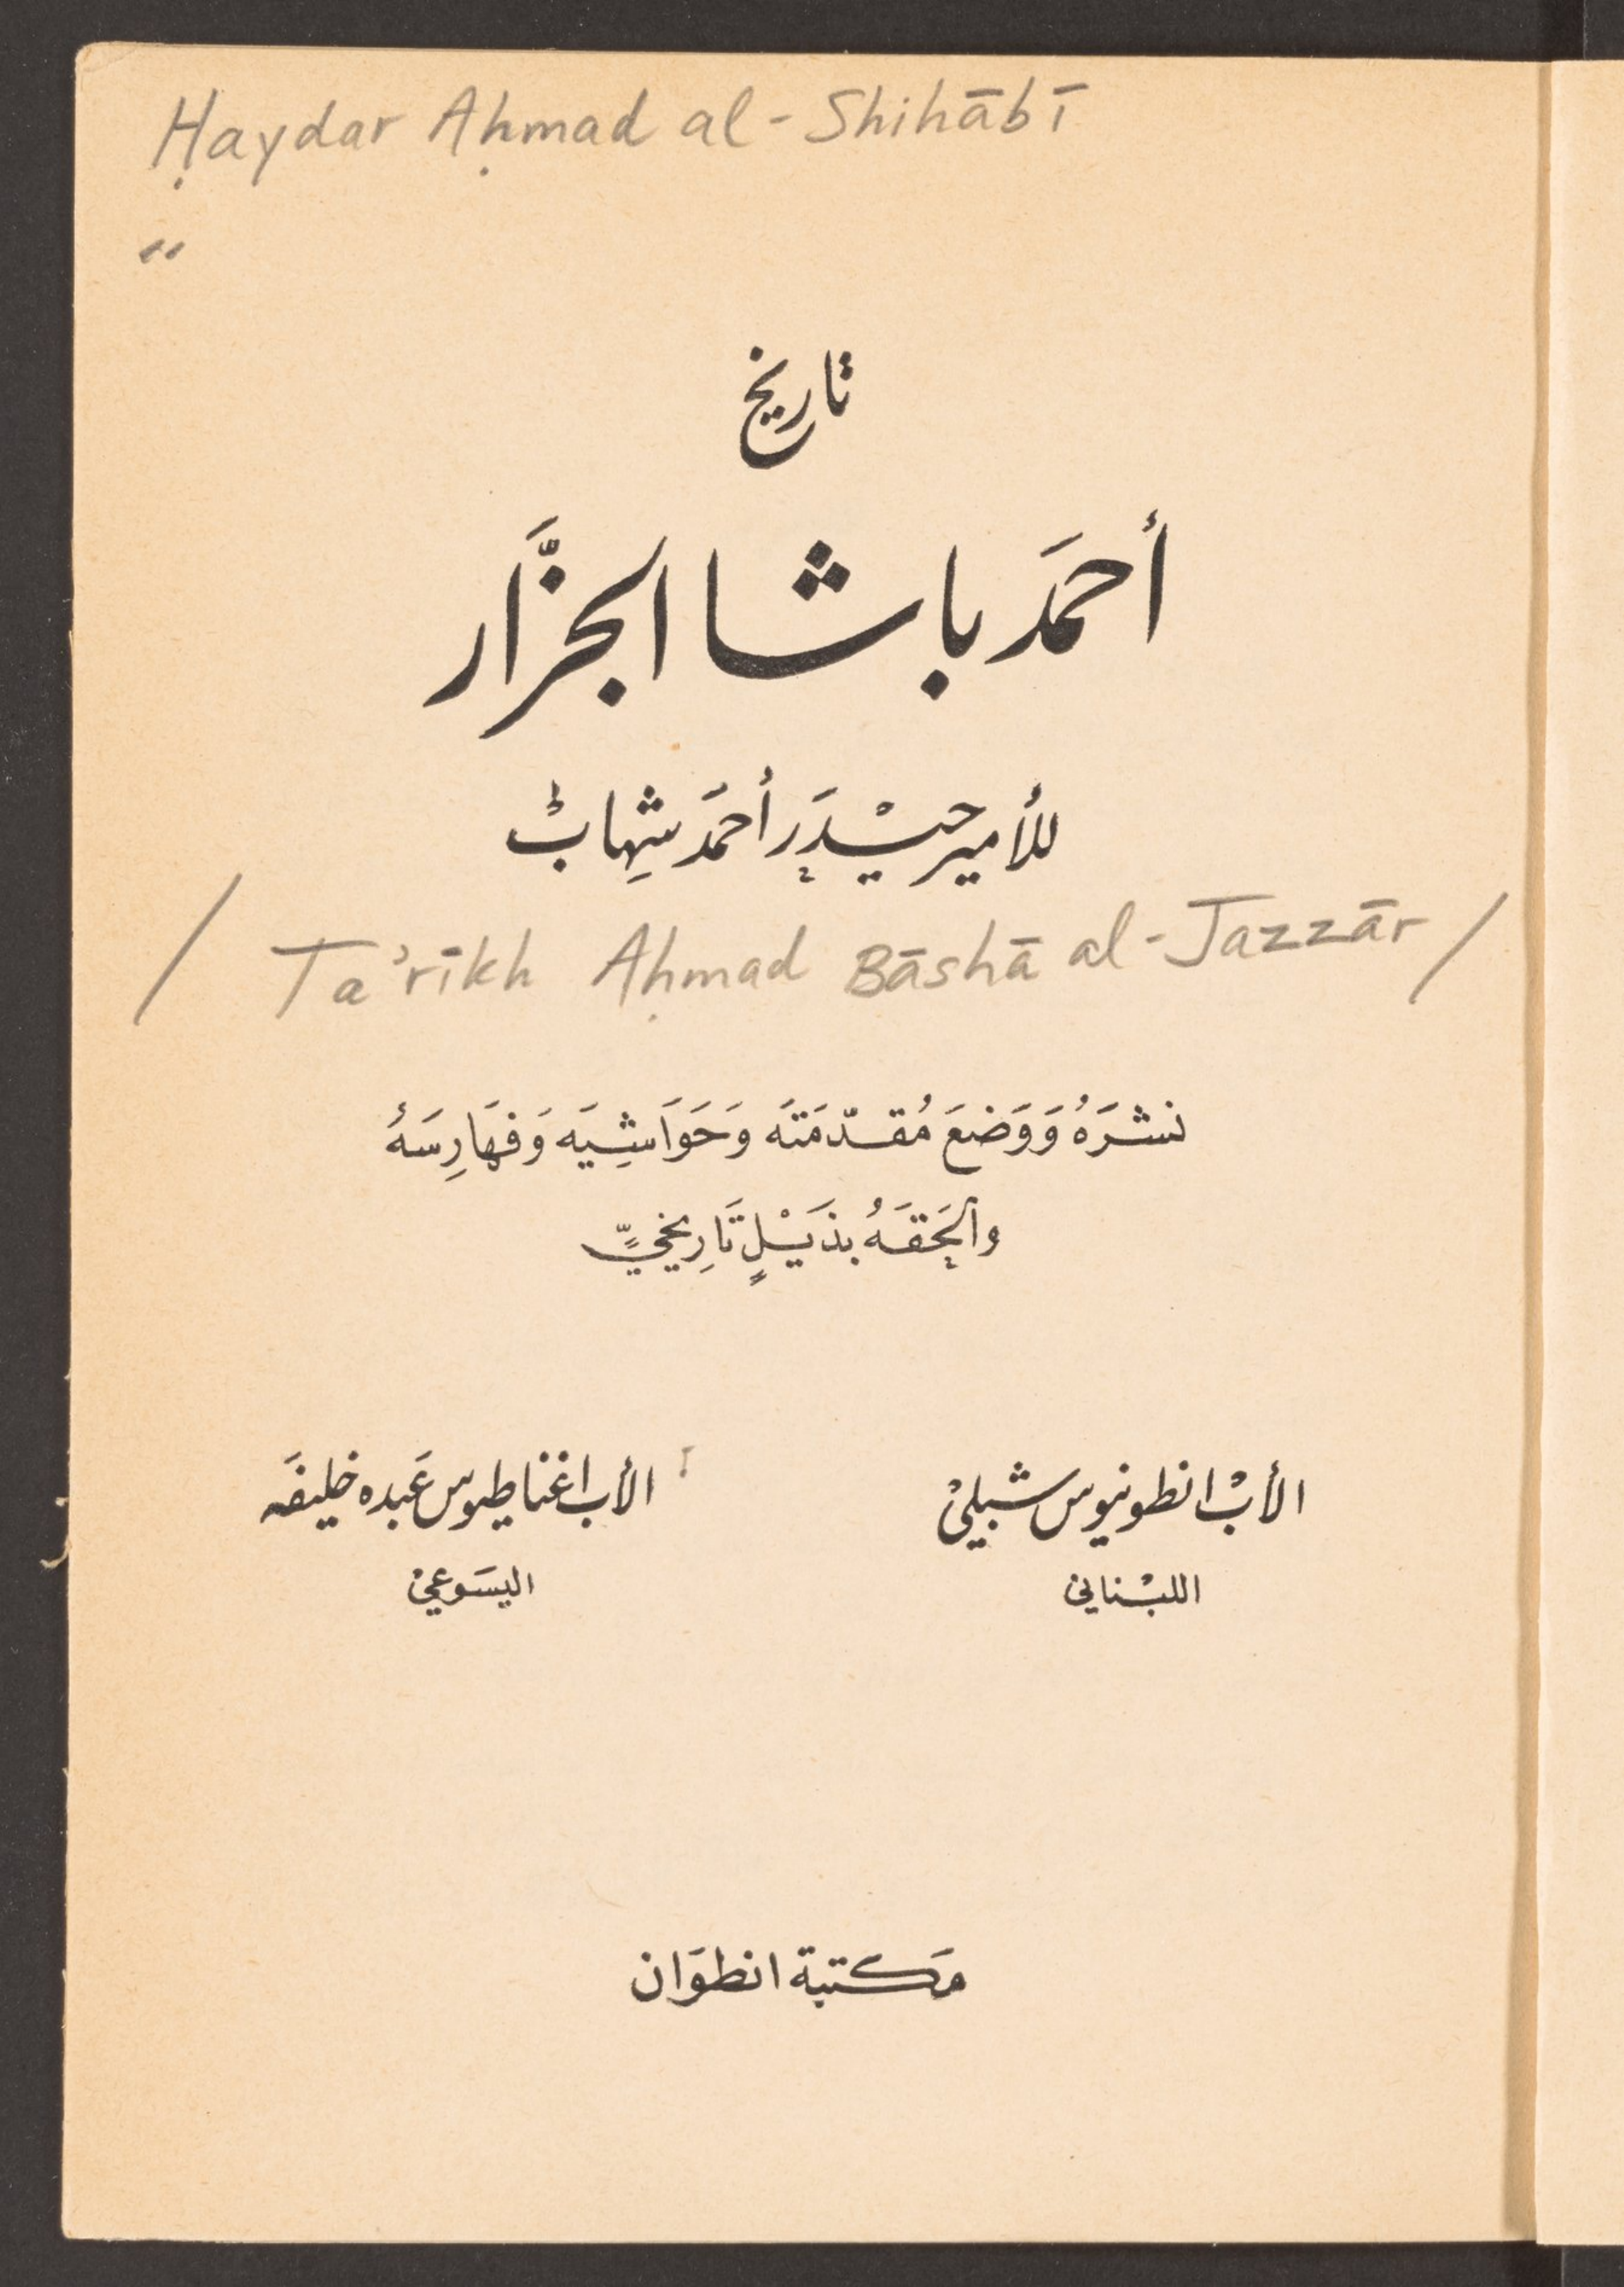 Ḥaydar Aḥmad al-Shihābī
"
تاريخ
أحمَد باشا الجزَّار
للأمير حيْدَر أحمَد شِهابْ
/ Ta'rīkh Aḥmad Bāshā al-Jazzār /
نشَرَهُ وَوَضعَ مُقدّمَتَه وَحَوَاشِيَه وَفهَارِسَهُ
والحَقَهُ بذَيْلٍ تَارِيخيٍّ
الأبْ انطونيوس شبليْ
اللبْناني
الأب اغناطيوس عَبده خليفَه
اليسَوعيْ
مَكتبة انطوَان